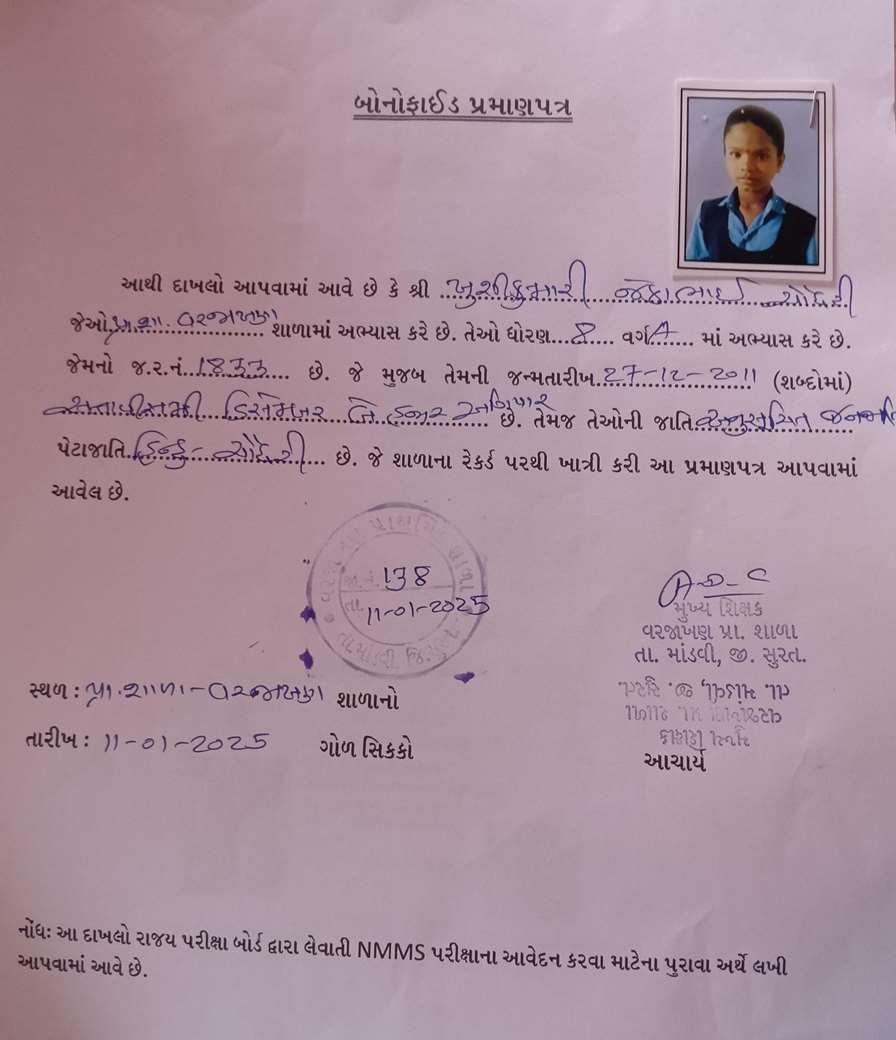 બોનોફાઈડ પ્રમાણપત્ર
આથી દાખલો આપવામાં આવે છે કે શ્રી ખુશીકુમારી જેઠાભાઈ ચૌધરી
જેઓ પ્રા.શા. વરજાખણ શાળામાં અભ્યાસ કરે છે. તેઓ ધોરણ...8.... વર્ગ A માં અભ્યાસ કરે છે.
જેમનો જ.ર.નં. 1833 છે. જે મુજબ તેમની જન્મતારીખ 27-12-2011 (શબ્દોમાં)
સત્તાવીસમી ડિસેમ્બર બે હજાર અગિયાર છે. તેમજ તેઓની જાતિ અનુસૂચિત જનજાતિ
પેટાજાતિ હિન્દુ-ચૌધરી છે. જે શાળાના રેકર્ડ પરથી ખાત્રી કરી આ પ્રમાણપત્ર આપવામાં
આવેલ છે.
વરજાખણ પ્રાથમિક શાળા
જા.નં. 138
તા. 11-01-2025
તા.માંડવી જિ.સુરત
મુખ્ય શિક્ષક
વરજાખણ પ્રા. શાળા
તા. માંડવી, જી. સુરત.
સ્થળ : પ્રા.શાળા-વરજાખણ શાળાનો
તારીખ : 11-01-2025 ગોળ સિકકો
તા. માંડવી, જી. સુરત.
વરજાખણ પ્રા. શાળા
મુખ્ય શિક્ષક
આચાર્ય
નોંધઃ આ દાખલો રાજય પરીક્ષા બોર્ડ દ્વારા લેવાતી NMMS પરીક્ષાના આવેદન કરવા માટેના પુરાવા અર્થે લખી
આપવામાં આવે છે.